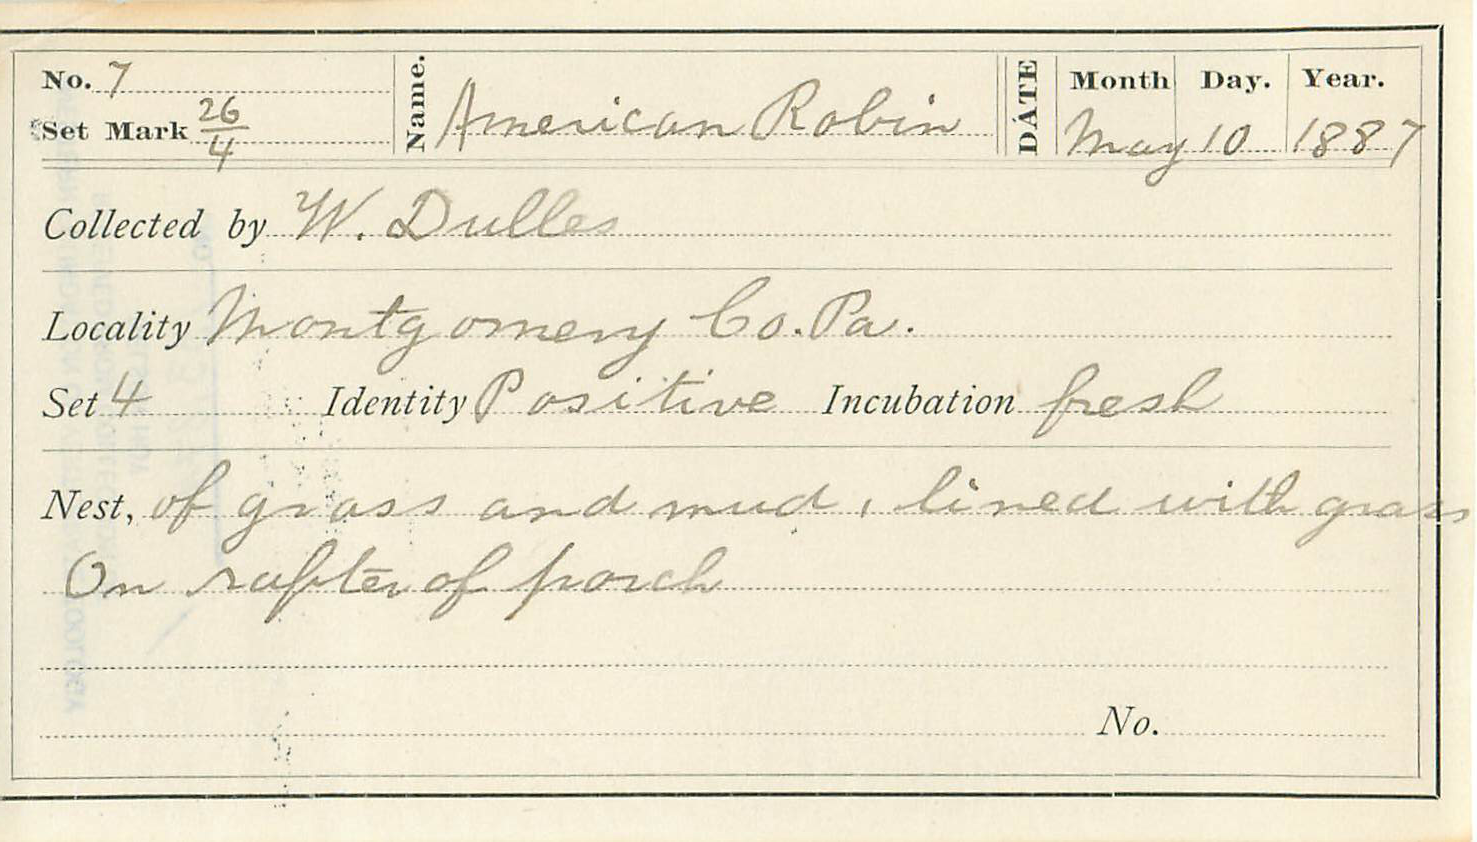 No. 7
Set Mark 26/4
Name. American Robin
DATE Month Day. Year.
May 10 1887
Collected by W. Dulles
Locality Montgomery Co. Pa.
Set 4 Identity Positive Incubation fresh
Nest, of grass and mud, lined with grass
On rafter of porch
No.